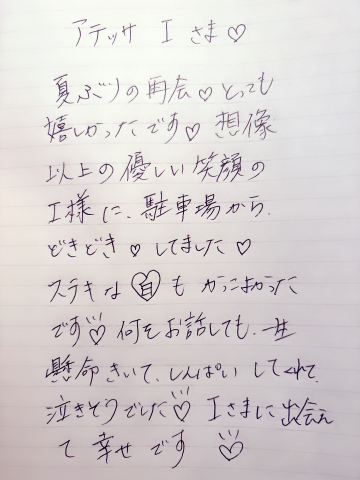 アテッサ I さま♡
夏ぶりの再会♡とっても
嬉しかったです♡ 想像
以上の優しい笑顔の
I様に、駐車場から、
どきどき♡してました♡
ステキな 自 も かっこよかった
です♡ 何をお話しても、一生
懸命きいて、しんぱいしてくれて、
泣きそうでした♡ Iさまに出会え
て 幸せです ♡